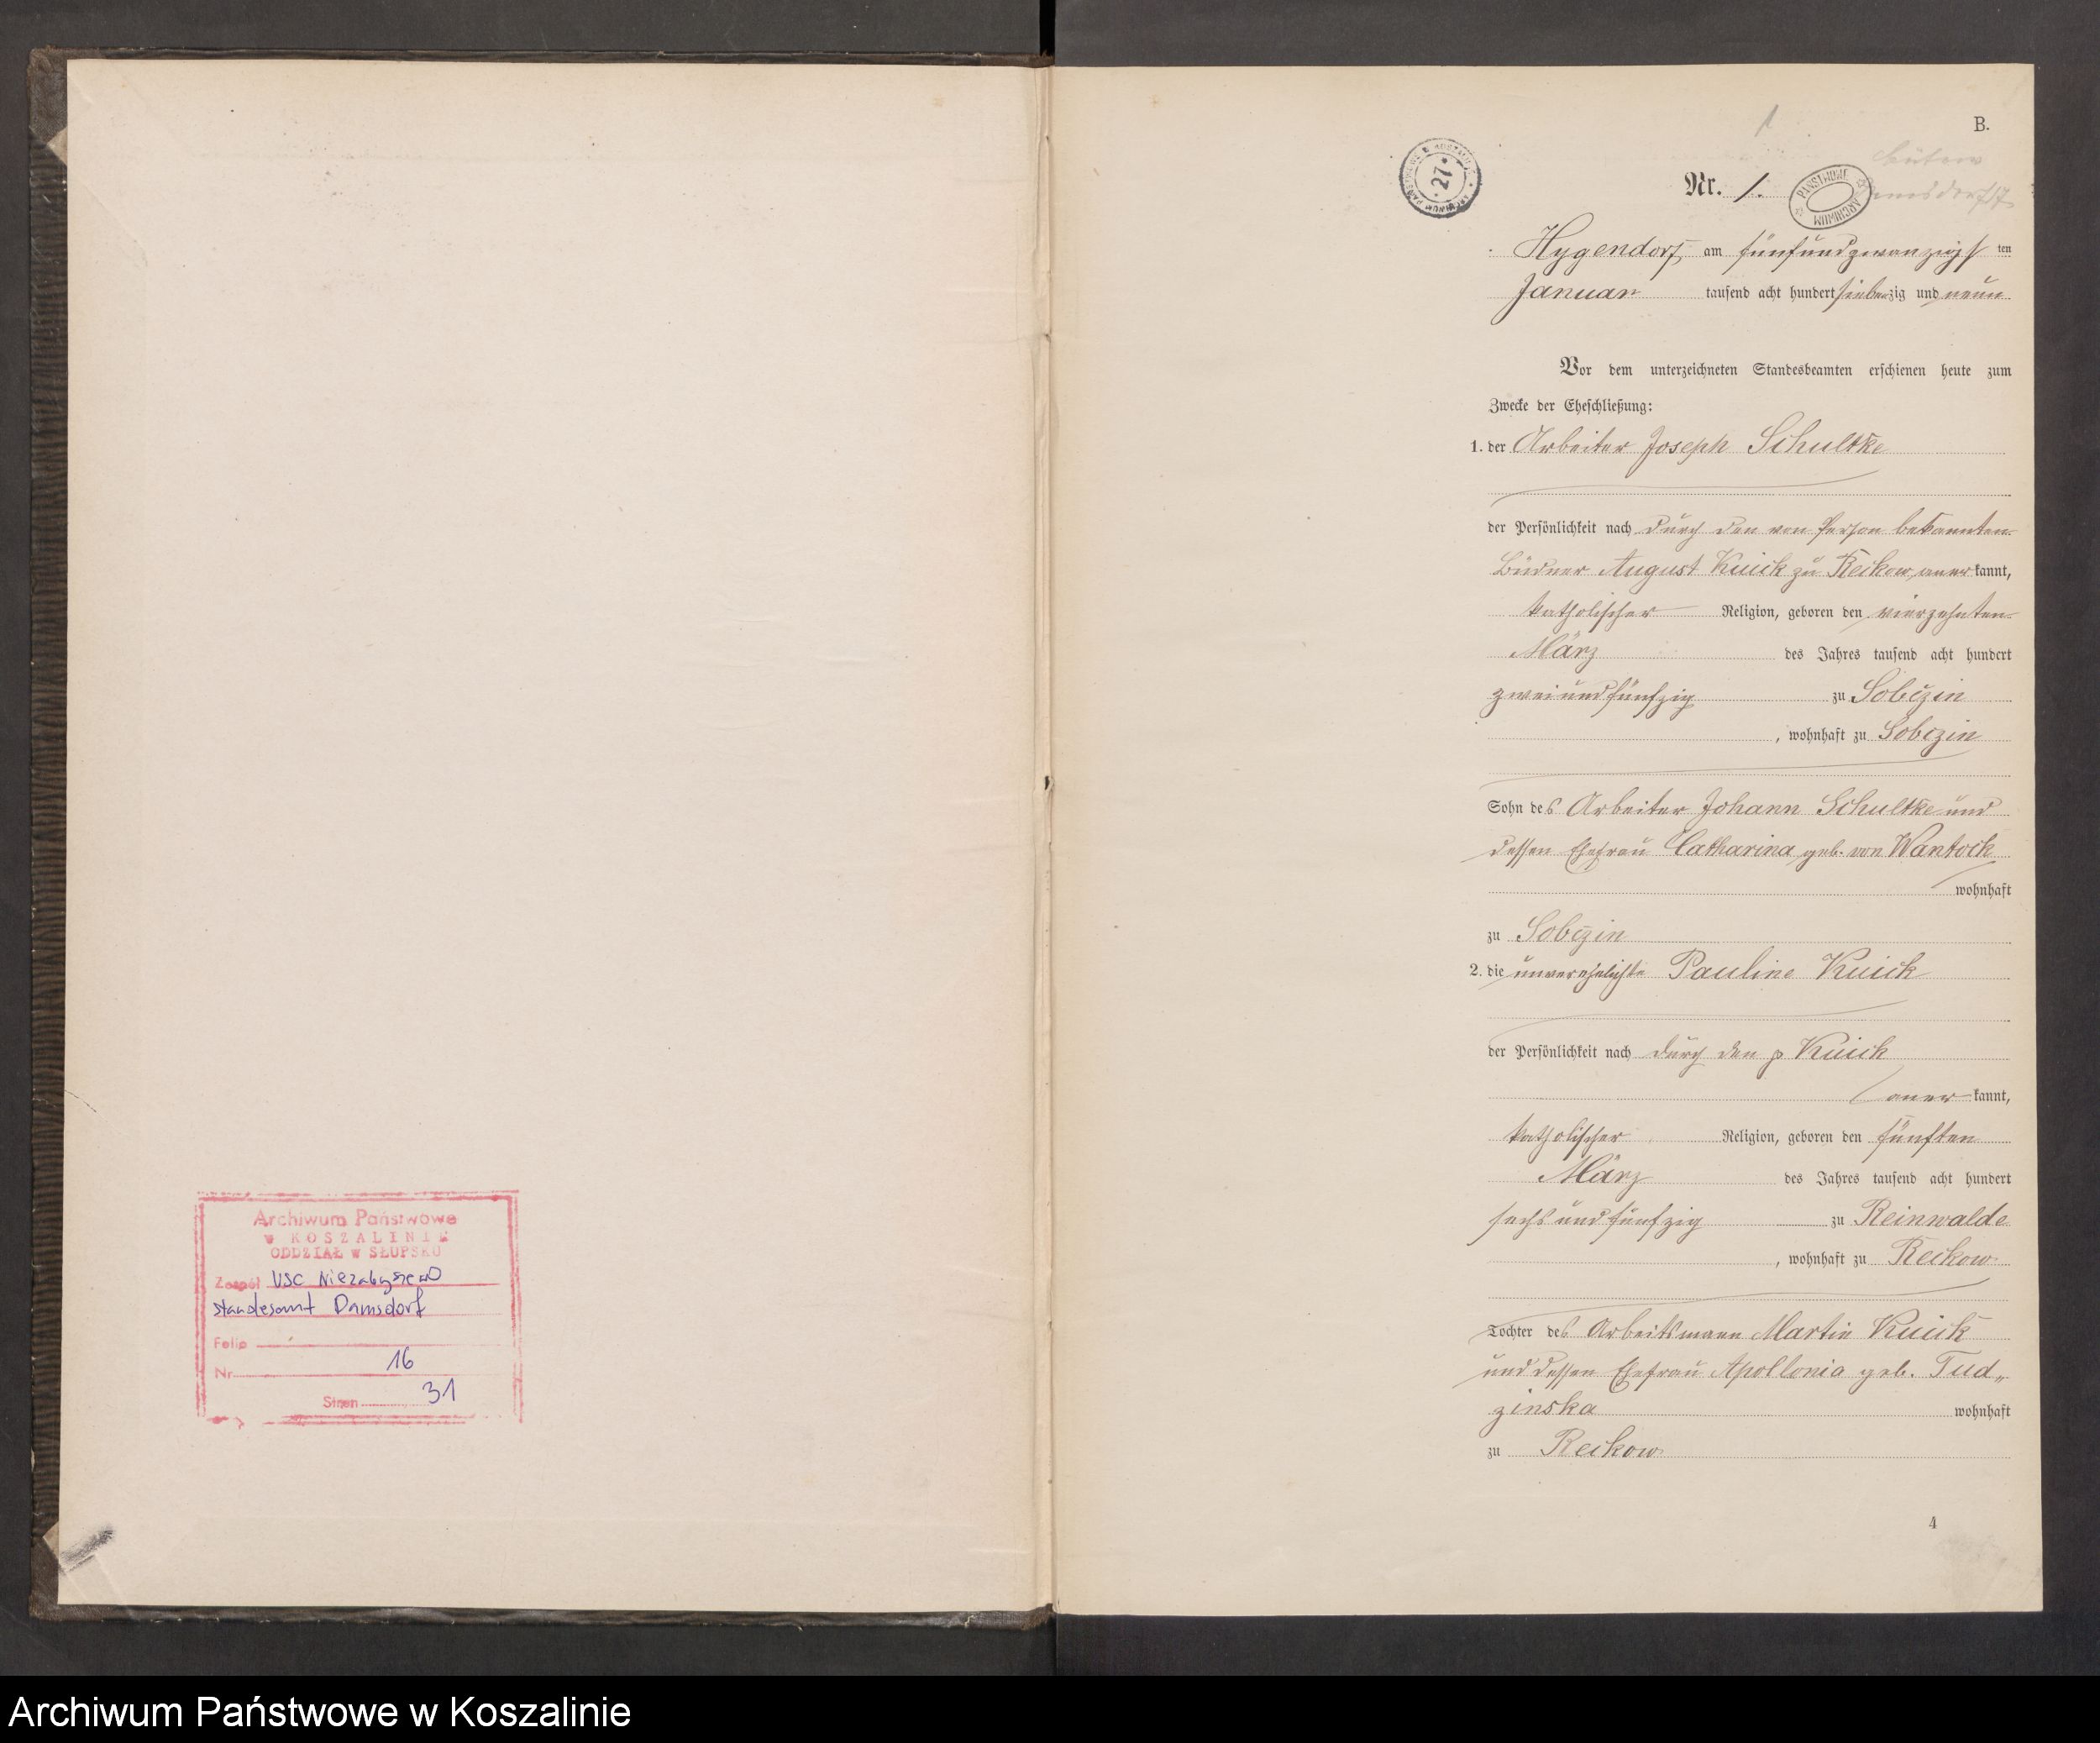 Archiwum Państwowe
w KOSZALINIE
ODDZIAŁ w SŁUPSKU
Zespół USC Niezabyszewo
Standesamt Damsdorf
Folio
Nr 16
Stron 31
B.
1
Bütow
27
Nr. 1.
PAŃSTWOWE ARCHIWUM
Hygendorf, am fünfundzwanzigsten
Januar tausend acht hundert siebenzig und neun
Vor dem unterzeichneten Standesbeamten erschienen heute zum
Zwecke der Eheschließung:
1. der Arbeiter Joseph Schultke
der Persönlichkeit nach durch den von Person bekannten
Büdner August Kuick zu Reckow anerkannt,
katholischer Religion, geboren den vierzehnten
März des Jahres tausend acht hundert
zweiundfünfzig zu Sobczin
, wohnhaft zu Sobczin
Sohn des Arbeiter Johann Schultke und
dessen Ehefrau Catharina geb. von Wantock
wohnhaft
zu Sobczin
2. die unverehelichte Pauline Kuick
der Persönlichkeit nach durch den p Kuick
anerkannt,
katholischer Religion, geboren den fünften
März des Jahres tausend acht hundert
sechsundfünfzig zu Reinwalde
, wohnhaft zu Reckow
Tochter des Arbeitsmann Martin Kuick
und dessen Ehefrau Apollonia geb. Tud„
zinska wohnhaft
zu Reckow
4
Archiwum Państwowe w Koszalinie